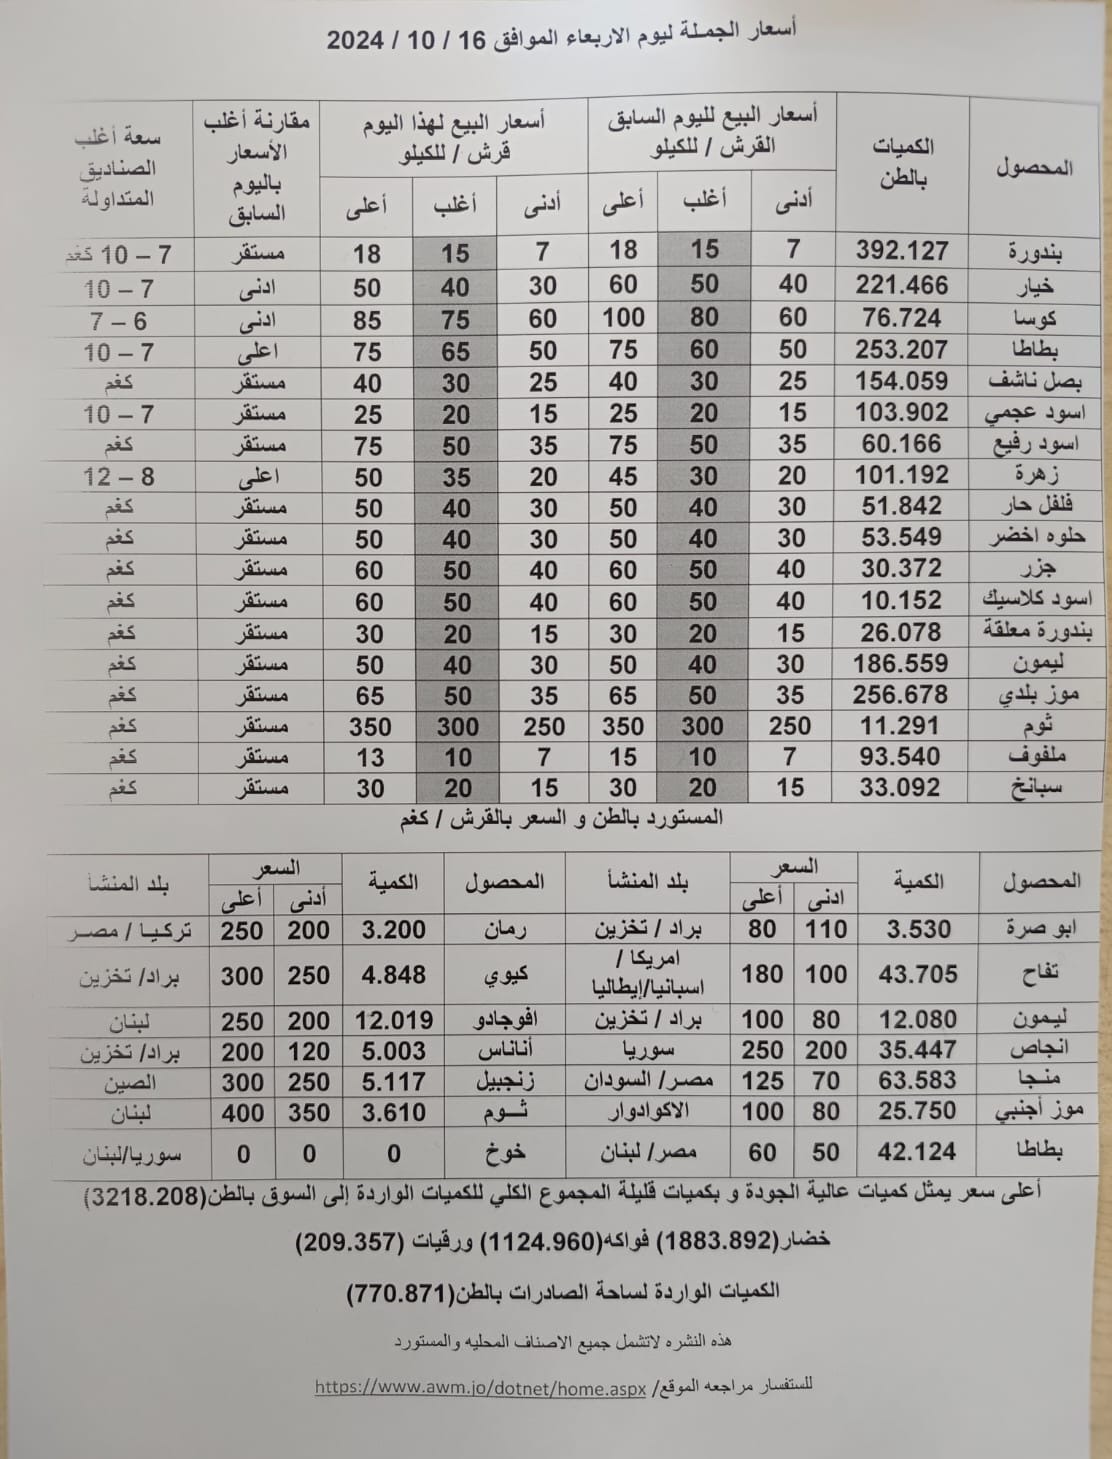 أسعار الجملة ليوم الاربعاء الموافق 16 / 10 / 2024
المحصول الكميات بالطن أسعار البيع لليوم السابق القرش / للكيلو أسعار البيع لهذا اليوم قرش / للكيلو مقارنة أغلب الأسعار باليوم السابق سعة أغلب الصناديق المتداولة
أدنى أغلب أعلى أدنى أغلب أعلى
بندورة 392.127 7 15 18 7 15 18 مستقر 7 – 10 كغم
خيار 221.466 40 50 60 30 40 50 ادنى 7 – 10
كوسا 76.724 60 80 100 60 75 85 ادنى 6 – 7
بطاطا 253.207 50 60 75 50 65 75 اعلى 7 – 10
بصل ناشف 154.059 25 30 40 25 30 40 مستقر كغم
اسود عجمي 103.902 15 20 25 15 20 25 مستقر 7 – 10
اسود رفيع 60.166 35 50 75 35 50 75 مستقر كغم
زهرة 101.192 20 30 45 20 35 50 اعلى 8 – 12
فلفل حار 51.842 30 40 50 30 40 50 مستقر كغم
حلوه اخضر 53.549 30 40 50 30 40 50 مستقر كغم
جزر 30.372 40 50 60 40 50 60 مستقر كغم
اسود كلاسيك 10.152 40 50 60 40 50 60 مستقر كغم
بندورة معلقة 26.078 15 20 30 15 20 30 مستقر كغم
ليمون 186.559 30 40 50 30 40 50 مستقر كغم
موز بلدي 256.678 35 50 65 35 50 65 مستقر كغم
ثوم 11.291 250 300 350 250 300 350 مستقر كغم
ملفوف 93.540 7 10 15 7 10 13 مستقر كغم
سبانخ 33.092 15 20 30 15 20 30 مستقر كغم
المستورد بالطن و السعر بالقرش / كغم
المحصول الكمية السعر بلد المنشأ المحصول الكمية السعر بلد المنشأ
ادنى أعلى أدنى أعلى
ابو صرة 3.530 110 80 براد / تخزين رمان 3.200 200 250 تركيا / مصر
تفاح 43.705 100 180 امريكا / اسبانيا/إيطاليا كيوي 4.848 250 300 براد/ تخزين
ليمون 12.080 80 100 براد / تخزين افوجادو 12.019 200 250 لبنان
انجاص 35.447 200 250 سوريا أناناس 5.003 120 200 براد/ تخزين
منجا 63.583 70 125 مصر/ السودان زنجبيل 5.117 250 300 الصين
موز أجنبي 25.750 80 100 الاكوادوار ثوم 3.610 350 400 لبنان
بطاطا 42.124 50 60 مصر/ لبنان خوخ 0 0 0 سوريا/لبنان
أعلى سعر يمثل كميات عالية الجودة و بكميات قليلة المجموع الكلي للكميات الواردة إلى السوق بالطن(3218.208)
خضار(1883.892) فواكه(1124.960) ورقيات (209.357)
الكميات الواردة لساحة الصادرات بالطن(770.871)
هذه النشره لاتشمل جميع الاصناف المحليه والمستورد
للستفسار مراجعه الموقع/ https://www.awm.jo/dotnet/home.aspx